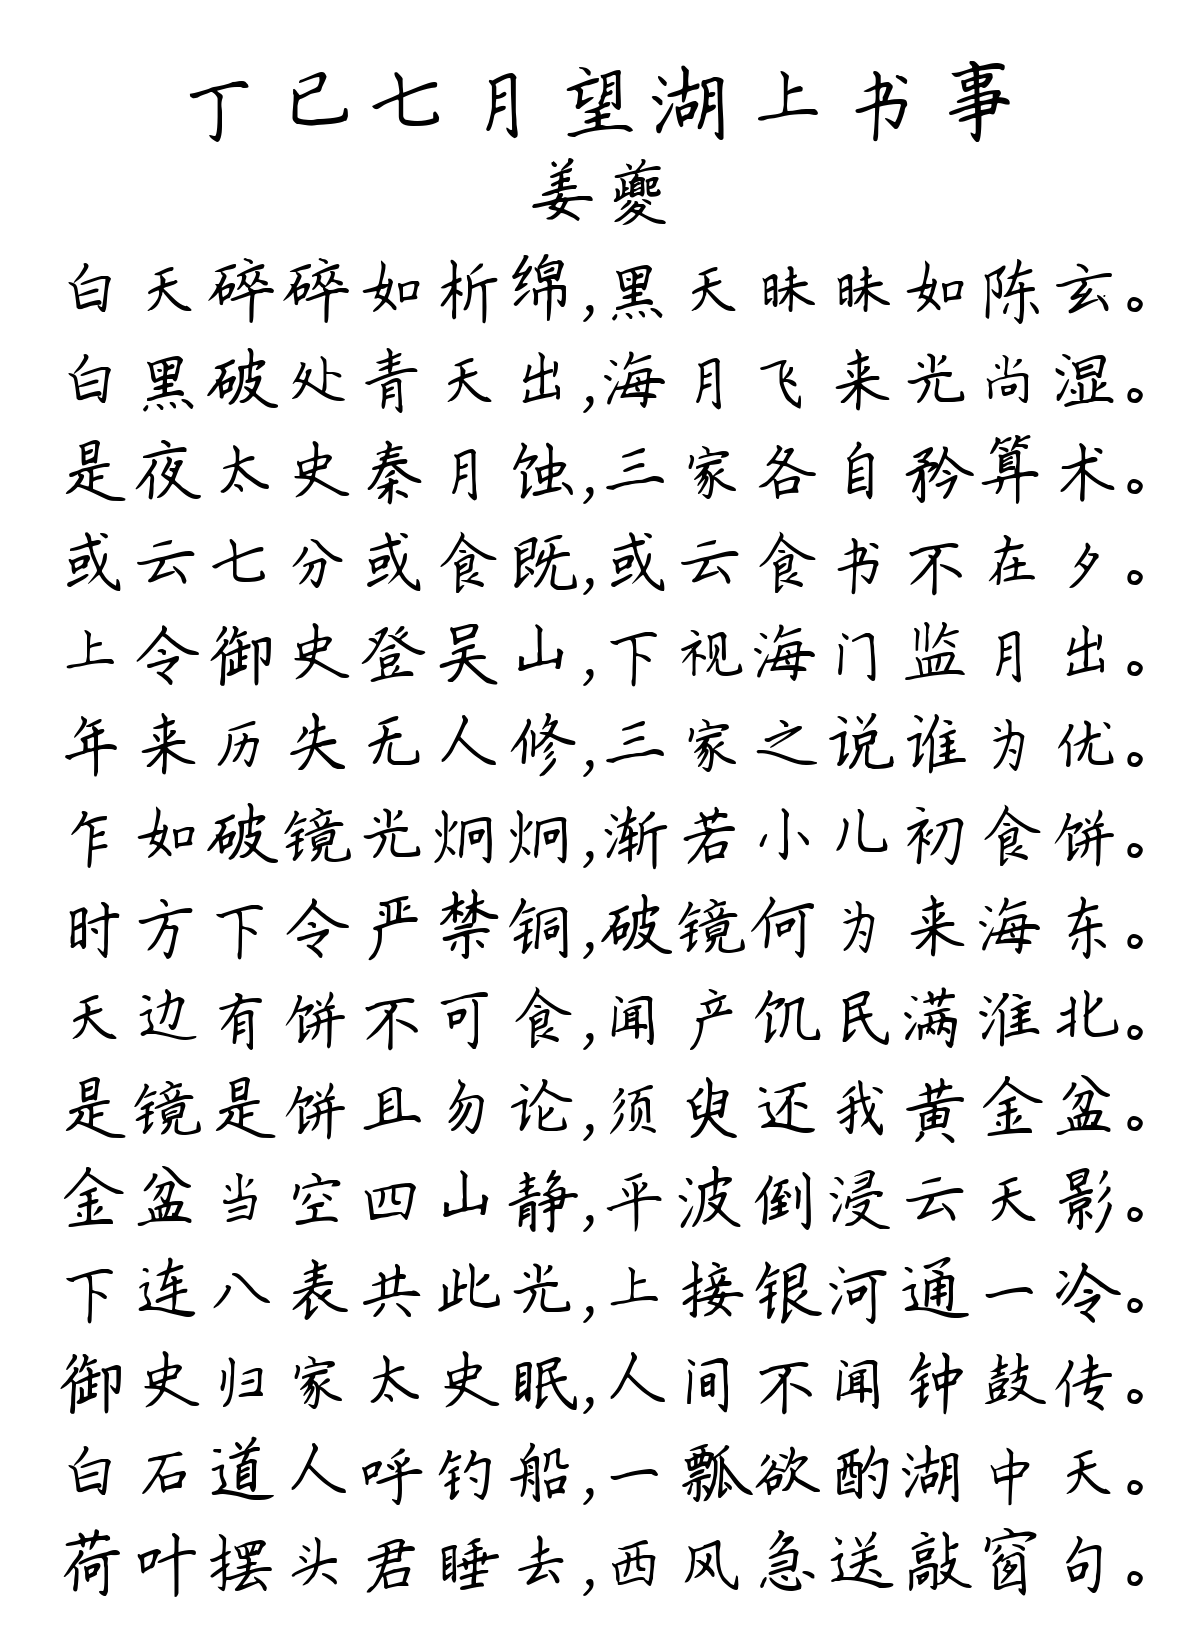 丁巳七月望湖上书事
姜夔
白天碎碎如析绵,黑天昧昧如陈玄。
白黑破处青天出,海月飞来光尚湿。
是夜太史秦月蚀,三家各自矜算术。
或云七分或食既,或云食书不在夕。
上令御史登吴山,下视海门监月出。
年来历失无人修,三家之说谁为优。
乍如破镜光炯炯,渐若小儿初食饼。
时方下令严禁铜,破镜何为来海东。
天边有饼不可食,闻产饥民满淮北。
是镜是饼且勿论,须臾还我黄金盆。
金盆当空四山静,平波倒浸云天影。
下连八表共此光,上接银河通一冷。
御史归家太史眠,人间不闻钟鼓传。
白石道人呼钓船,一瓢欲酌湖中天。
荷叶摆头君睡去,西风急送敲窗句。